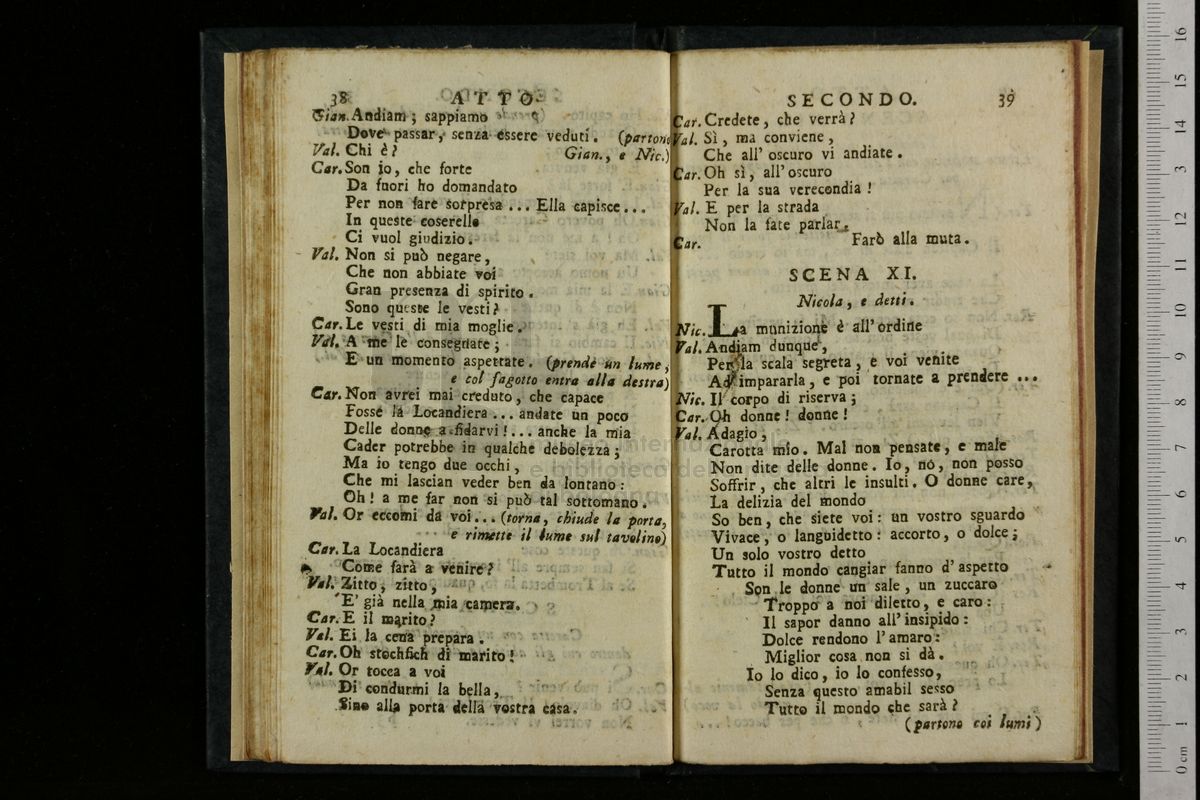 38 ATTO
Gian. Andiam; sappiamo
Dove passar, senza essere veduti. (partono
Val. Chi è? Gian., e Nic.)
Car. Son io, che forte
Da fuori ho domandato
Per non fare sorpresa ... Ella capisce ...
In queste coserelle
Ci vuol giudizio.
Val. Non si può negare,
Che non abbiate voi
Gran presenza di spirito.
Sono queste le vesti?
Car. Le vesti di mia moglie.
Val. A me le consegnate;
E un momento aspettate. (prende un lume,
e col fagotto entra alla destra)
Car. Non avrei mai creduto, che capace
Fosse la Locandiera ... andate un poco
Delle donne a fidarvi! ... anche la mia
Cader potrebbe in qualche debolezza;
Ma io tengo due occhi,
Che mi lascian veder ben da lontano:
Oh! a me far non si può tal sottomano.
Val. Or eccomi da voi... (torna, chiude la porta,
e rimette il lume sul tavolino)
Car. La Locandiera
Come farà a venire?
Val. Zitto, zitto,
E' già nella mia camera.
Car. E il marito?
Val. Ei la cena prepara.
Car. Oh stochfich di marito!
Val. Or tocca a voi
Di condurmi la bella,
Sino alla porta della vostra casa.
SECONDO. 39
Car. Credete, che verrà?
Val. Sì, ma conviene,
Che all' oscuro vi andiate.
Car. Oh sì, all' oscuro
Per la sua verecondia!
Val. E per la strada
Non la fate parlar.
Car. Farò alla muta.
SCENA XI.
Nicola, e detti.
Nic. La munizione è all' ordine
Val. Andiam dunque,
Per la scala segreta, e voi venite
Ad impararla, e poi tornate a prendere ...
Nic. Il corpo di riserva;
Car. Oh donne! donne!
Val. Adagio,
Carotta mio. Mal non pensate, e male
Non dite delle donne. Io, nò, non posso
Soffrir, che altri le insulti. O donne care,
La delizia del mondo
So ben, che siete voi: un vostro sguardo
Vivace, o languidetto: accorto, o dolce;
Un solo vostro detto
Tutto il mondo cangiar fanno d' aspetto
Son le donne un sale, un zuccaro
Troppo a noi diletto, e caro:
Il sapor danno all' insipido:
Dolce rendono l' amaro:
Miglior cosa non si dà.
Io lo dico, io lo confesso,
Senza questo amabil sesso
Tutto il mondo che sarà?
(partono coi lumi)
0 cm 1 2 3 4 5 6 7 8 9 10 11 12 13 14 15 16